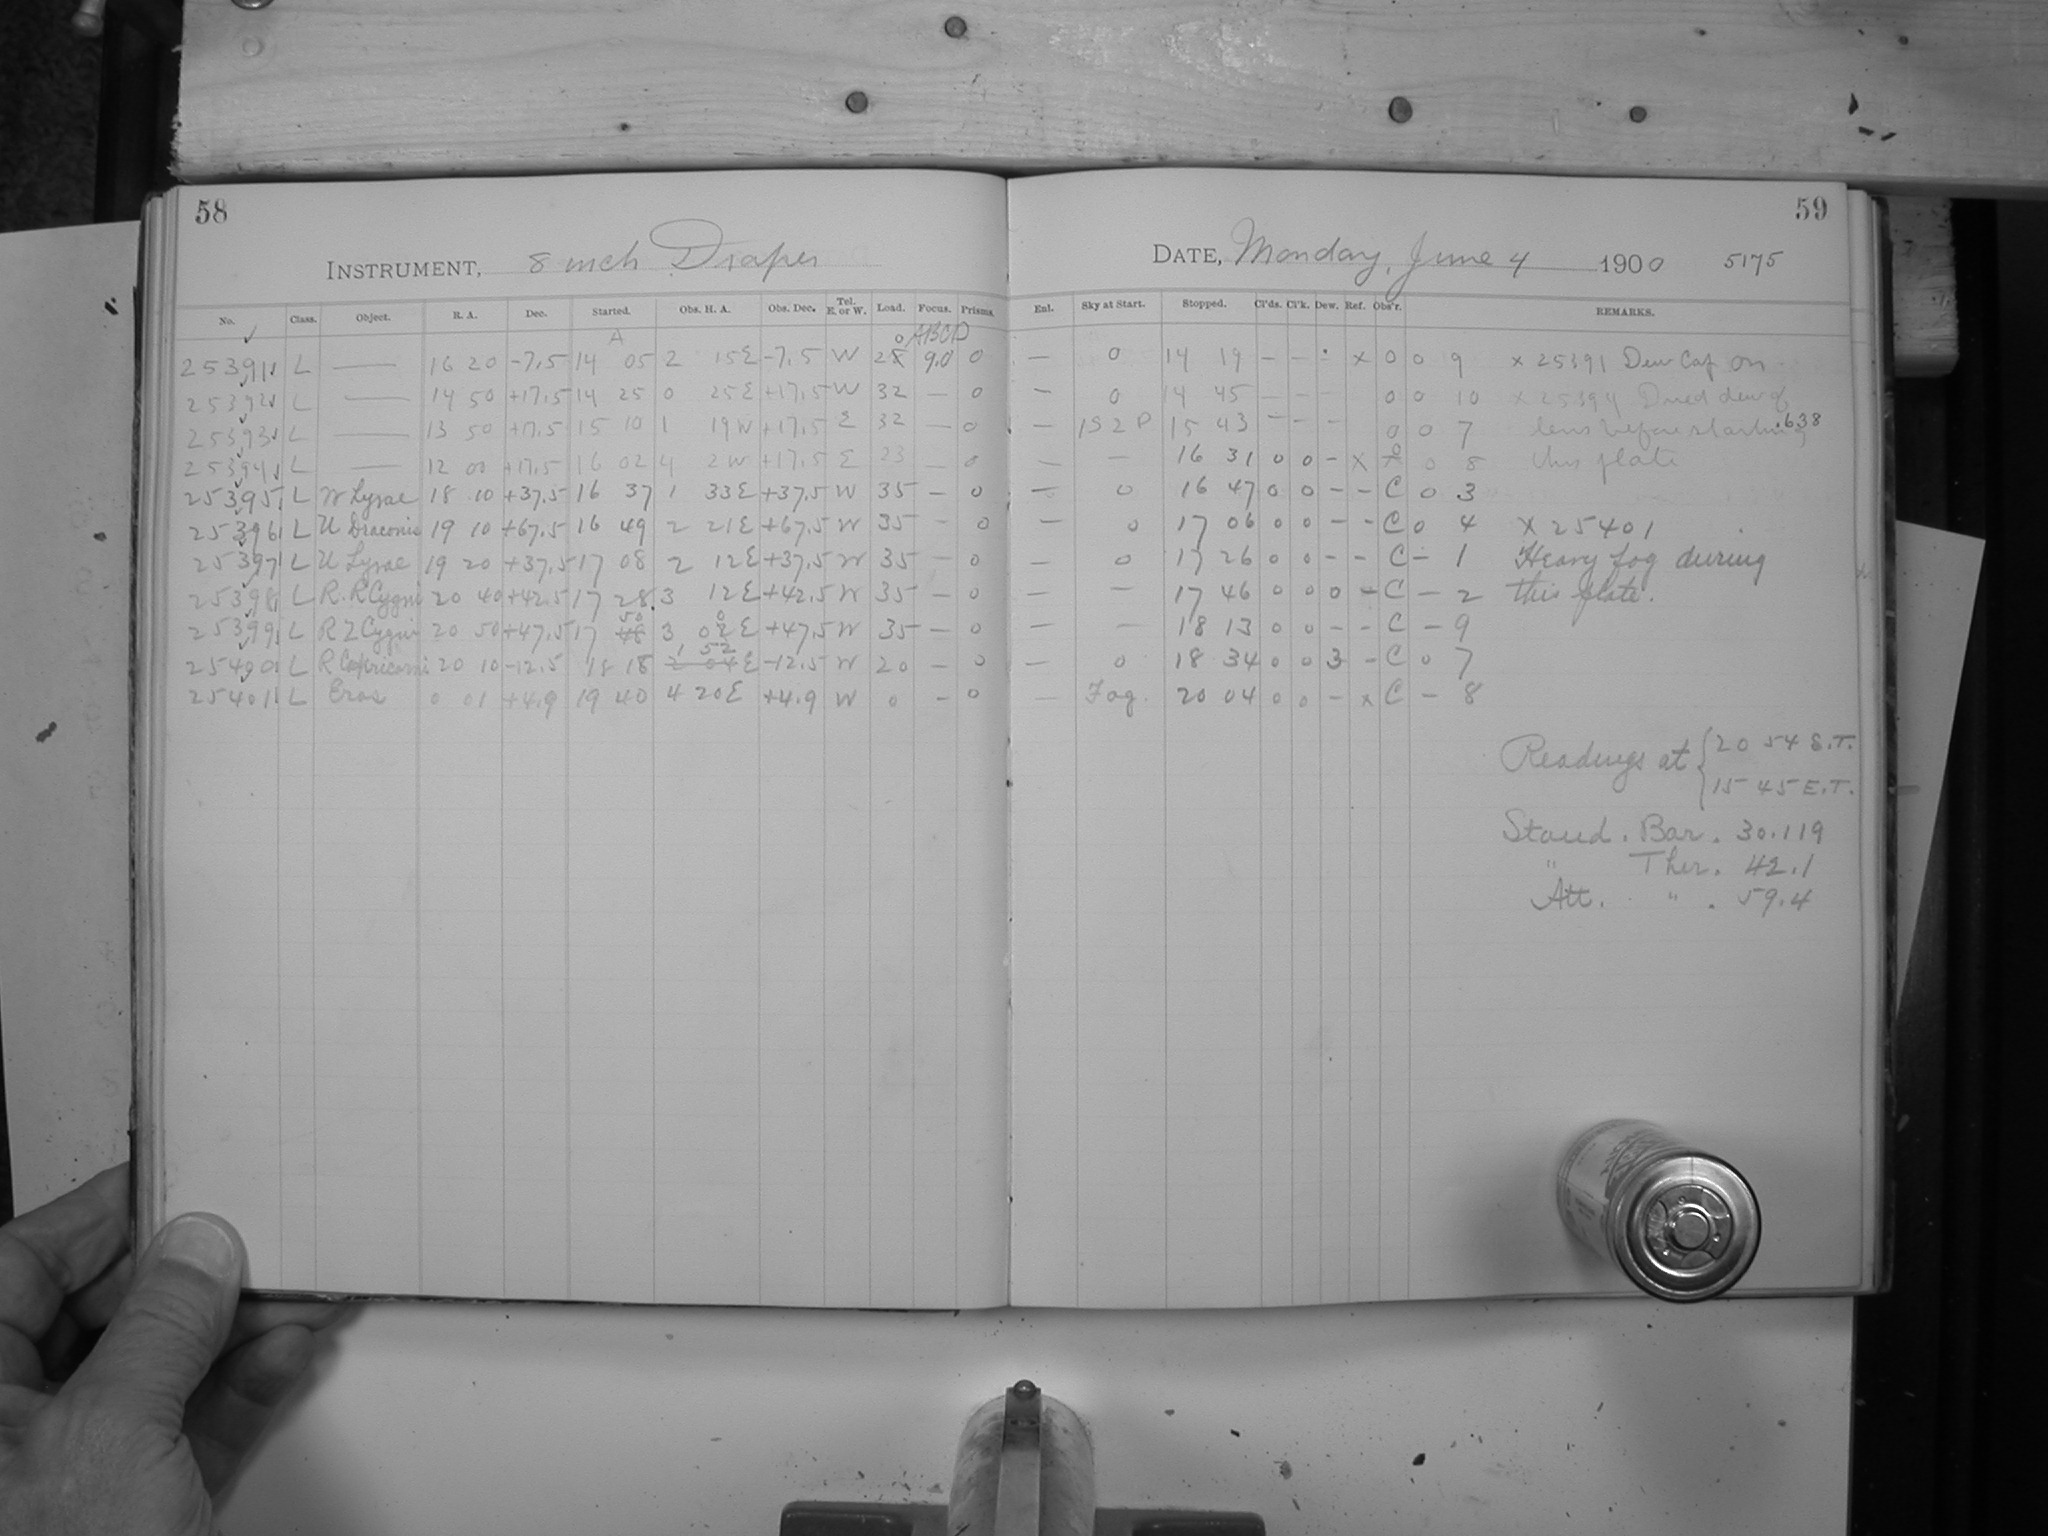 58
59
INSTRUMENT, 8 inch Draper
DATE, Monday, June 4 1900 5175
No. Class. Object. R. A. Dec. Started. Obs. H. A. Obs. Dec. Tel. E. or W. Load. Focus. Prisms. Enl. Sky at Start. Stopped. Cl'ds. Cl'k. Dew. Ref. Obs'r. REMARKS.
A ABCD
25391 L — 16 20 -7.5 14 05 2 15E -7.5 W 9.0 0 — 0 14 19 - - - x 0 0 9 x 25391 Dew Cap on
25392 L — 14 50 +17.5 14 25 0 25E +17.5 W 32 — 0 — 0 14 45 - - - 0 0 10 x 25394 Dried dew of
25393 L — 13 50 +17.5 15 10 1 19W +17.5 E 32 — 0 — 1S2P 15 43 - - - 0 0 7 lens before starting .638
25394 L — 12 00 +17.5 16 02 4 2W +17.5 E 23 — 0 — — 16 31 0 0 - x 0 8 this plate
25395 L W Lyrae 18 10 +37.5 16 37 1 33E +37.5 W 35 — 0 — 0 16 47 0 0 - - C 0 3
25396 L U Draconis 19 10 +67.5 16 49 2 21E +67.5 W 35 - 0 — 0 17 06 0 0 - - C 0 4 X 25401
25397 L U Lyrae 19 20 +37.5 17 08 2 12E +37.5 W 35 - 0 — 0 17 26 0 0 - - C - 1 Heavy fog during
25398 L R.R Cygni 20 40 +42.5 17 28 3 12E +42.5 W 35 - 0 — — 17 46 0 0 0 - C - 2 this plate.
25399 L RZ Cygni 20 50 +47.5 17 50 3 00E +47.5 W 35 — 0 — — 18 13 0 0 - - C - 9
25400 L R Capricorni 20 10 -12.5 18 18 1 52 E -12.5 W 20 - 0 — 0 18 34 0 0 3 - C 0 7
25401 L Eros 0 01 +4.9 19 40 4 20E +4.9 W 0 - 0 — Fog. 20 04 0 0 - x C - 8
Readings at { 20 54 S.T.
15 45 E.T.
Stand. Bar. 30.119
" Ther. 42.1
Att. " . 59.4